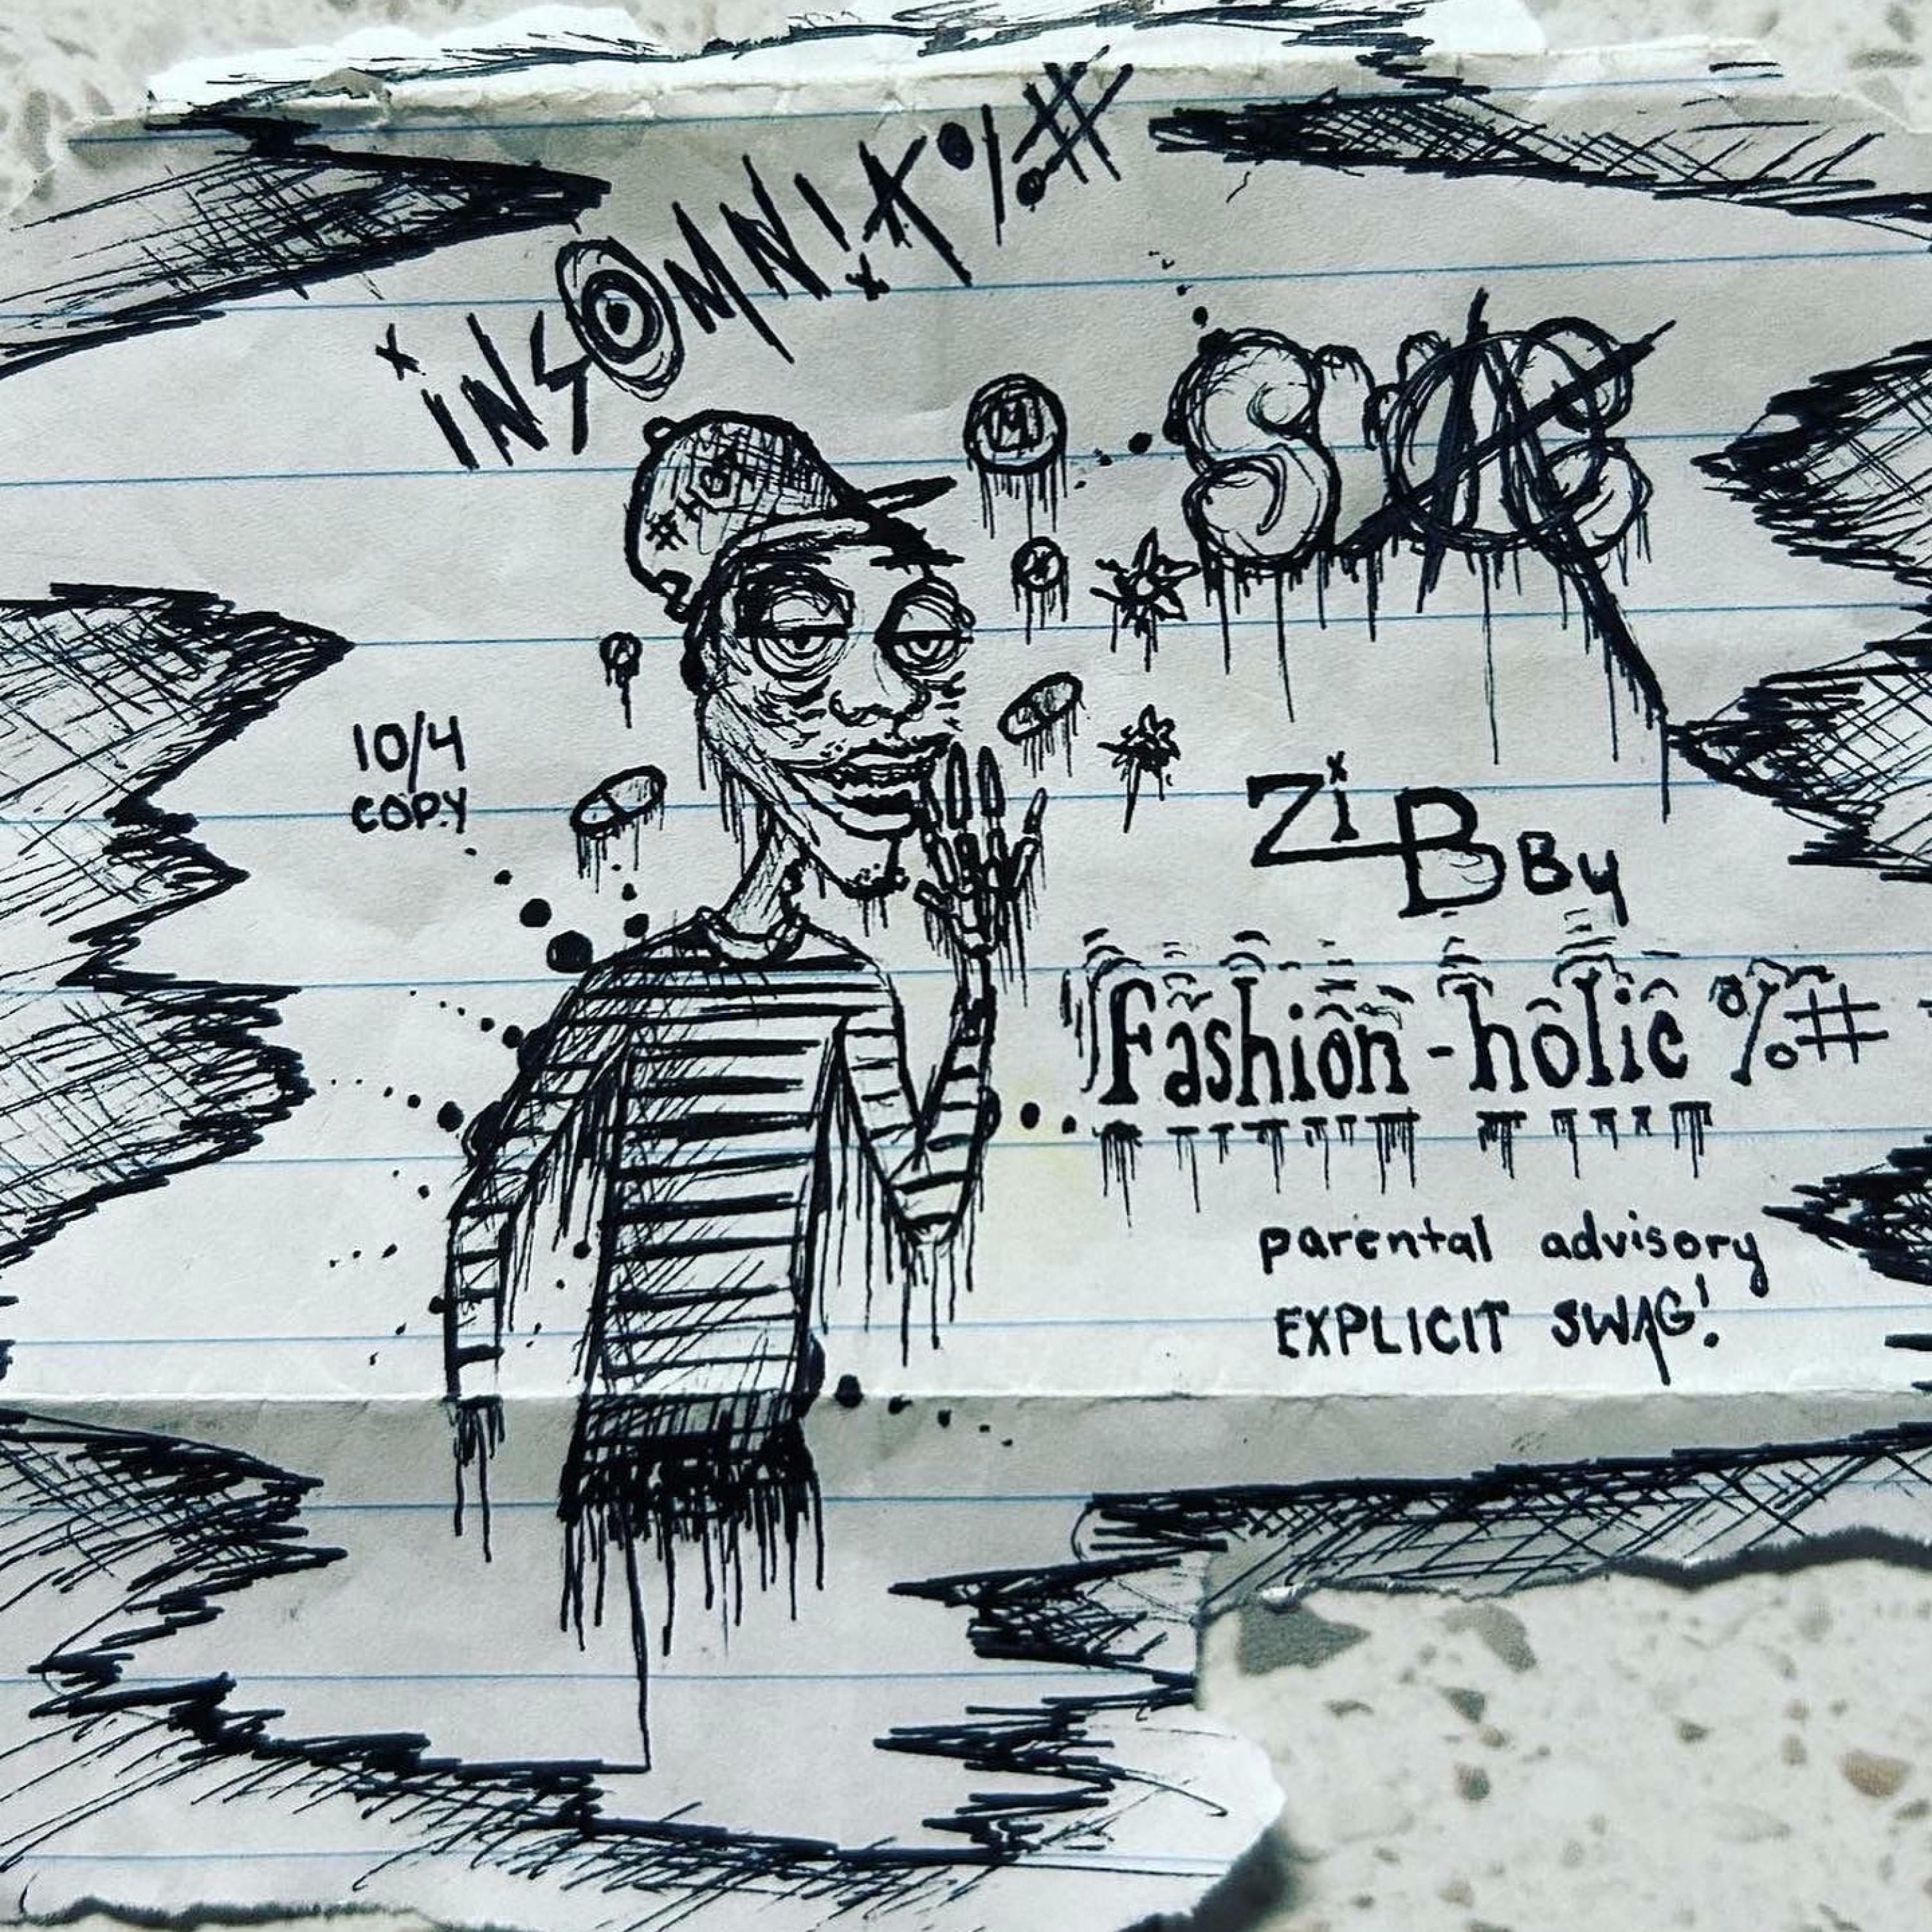 iNSOMN!A%#
M
10/4
COPY
ZiBBy
fashion-holic %#
parental advisory
EXPLICIT SWAG!